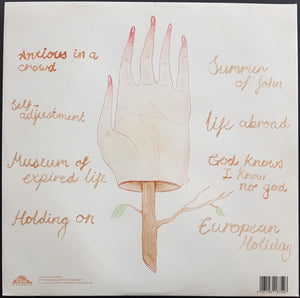 Anxious in a
crowd
Self-
adjustment
Museum of
expired life
Holding on
Summer
of john
life abroad
God knows
I know
no god
European
Holiday